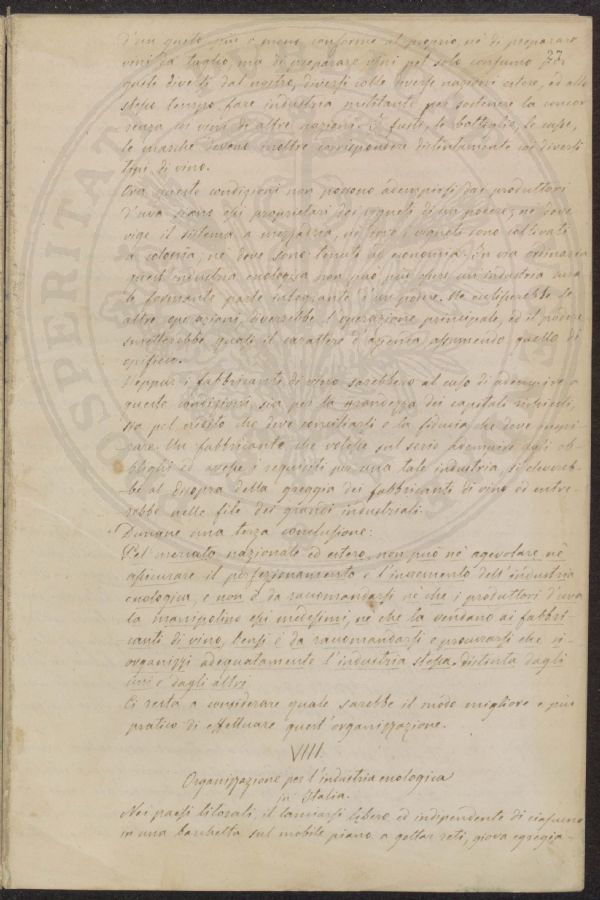 d'un gusto più o meno conforme al proprio, nè di preparare
vini da taglio, ma di preparare vini pel solo consumo
gusto diversi dal nostro, diversi colle diverse nazioni estere, ed allo
stesso tempo fare industria militante per sostenere la concor-
renza coi vini di altre nazioni. I fusti, le bottiglie, le casse,
le marche devono inoltre corrispondere distintamente coi diversi
tipi di vino.
Ora queste condizioni non possono adempiersi dai produttori
d'uva siano essi proprietari dei vigneti di un podere, nè dove
vige il sistema a mezzadria, nè dove i vigneti sono coltivati
a colonia, nè dove sono tenuti ad economia. In via ordinaria
quest'industria enologica non può più dirsi un'industria rura-
le formante parte integrante d'un podere. Ne
altre operazioni, sarebbe l'operazione principale, ed il podere
smetterebbe quasi il carattere d'azienda assumendo quello di
opificio.
Neppur i fabbricanti di vino sarebbero al caso di adempiere a
queste condizioni, sia per la grandezza dei capitali richiesti,
sia pel credito che deve conciliarsi e la fiducia che deve
Un fabbricante che volesse sul serio adempiere agli ob-
blighi ed avesse i requisiti per una tale industria, si eleverebb-
be al disopra della greggia dei fabbricanti di vino ed entre-
rebbe nelle file dei grandi industriali.
Dunque una terza conclusione:
Pel mercato nazionale ed estero, non può nè agevolare nè
assicurare il perfezionamento e l'incremento dell'industria
enologica, e non è da raccomandarsi nè che i produttori d'uva
la manipolino essi medesimi, nè che la vendano ai fabbri-
canti di vino, bensì è da raccomandarsi e procurarsi che si
organizzi adeguatamente l'industria stessa, distinta dagli
uni e dagli altri.
Ci resta a considerare quale sarebbe il modo migliore e più
pratico di effettuare quest'organizzazione.
VIII.
Organizzazione per l'industria enologica
in Italia.
Nei paesi litorali, il lanciarsi libero ed indipendente di ciascuno
in una barchetta sul mobile piano a gettar reti, giova egregia-